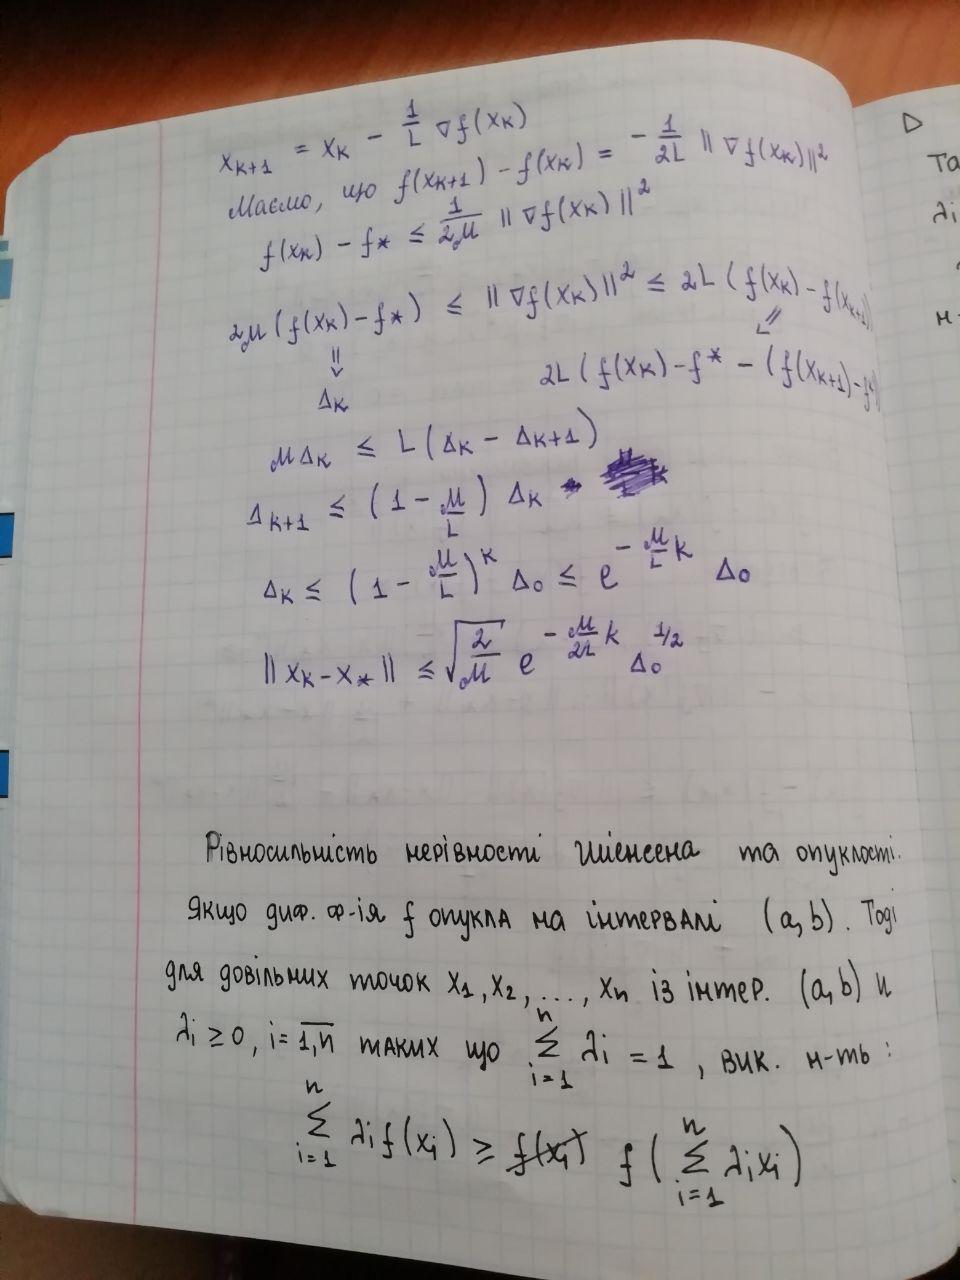 x_{k+1} = x_k - \frac{1}{L} ∇f(x_k)
Маємо, що f(x_{k+1}) - f(x_k) = - \frac{1}{2L} ||∇f(x_k)||^2
f(x_k) - f_* ≤ \frac{1}{2μ} ||∇f(x_k)||^2
2μ(f(x_k) - f_*) ≤ ||∇f(x_k)||^2 ≤ 2L(f(x_k) - f(x_{k+1}))
Δ_k
2L(f(x_k) - f^* - (f(x_{k+1}) - f^*))
μΔ_k ≤ L(Δ_k - Δ_{k+1})
Δ_{k+1} ≤ (1 - \frac{μ}{L}) Δ_k
Δ_k ≤ (1 - \frac{μ}{L})^k Δ_0 ≤ e^{-\frac{μ}{L}k} Δ_0
||x_k - x_*|| ≤ \sqrt{\frac{2}{μ}} e^{-\frac{μ}{2L}k} Δ_0^{1/2}
Рівносильність нерівності Ийенсена та опуклості.
Якщо диф. ф-ія f опукла на інтервалі (a, b). Тоді
для довільних точок x_1, x_2, ..., x_n із інтер. (a, b) и
λ_i ≥ 0, i = \overline{1,n} таких що \sum_{i=1}^{n} λ_i = 1, вик. н-ть:
\sum_{i=1}^{n} λ_i f(x_i) ≥ f(\sum_{i=1}^{n} λ_i x_i)
▷
Та
λ_i
н-